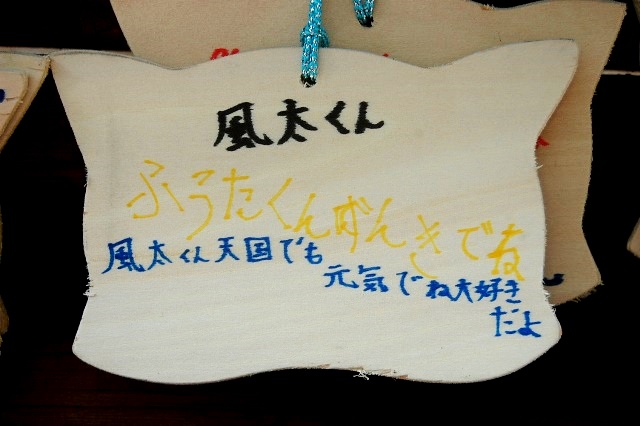 風太くん
ふうたくんげんきでね
風太くん天国でも
元気でね大好き
だよ